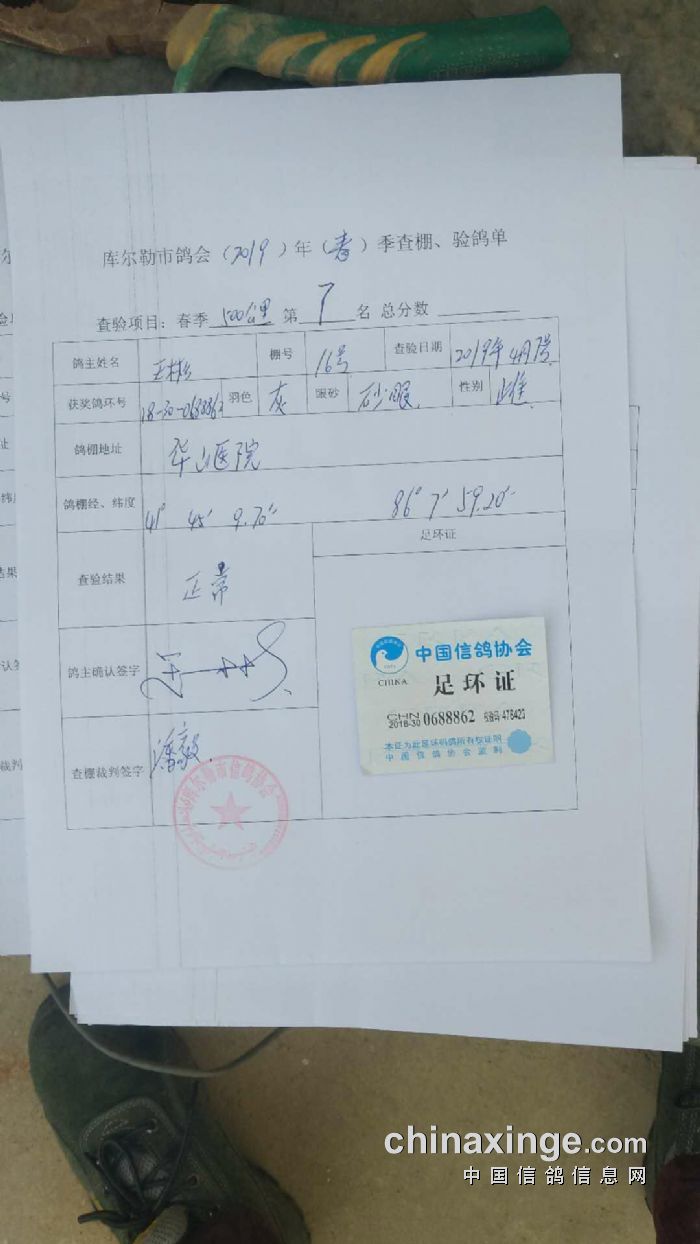 库尔勒市鸽会（2019）年（春）季查棚、验鸽单
查验项目：春季 500公里 第 7 名 总分数
鸽主姓名 王彬 棚号 16号 查验日期 2019年4月7号
获奖鸽环号 18-30-0688862 羽色 灰 眼砂 砂眼 性别 雄
鸽棚地址 华山医院
鸽棚经、纬度 41° 45′ 9.70″ 86° 7′ 59.20″
查验结果 正常 足环证
鸽主确认签字
查棚裁判签字 潘毅
中国信鸽协会
CHINA 足环证
CHN 2018-30 0688862 478420
本证为此足环码鸽所有权证明
中国信鸽协会监制
库尔勒市信鸽协会
chinaxinge.com
中国信鸽信息网